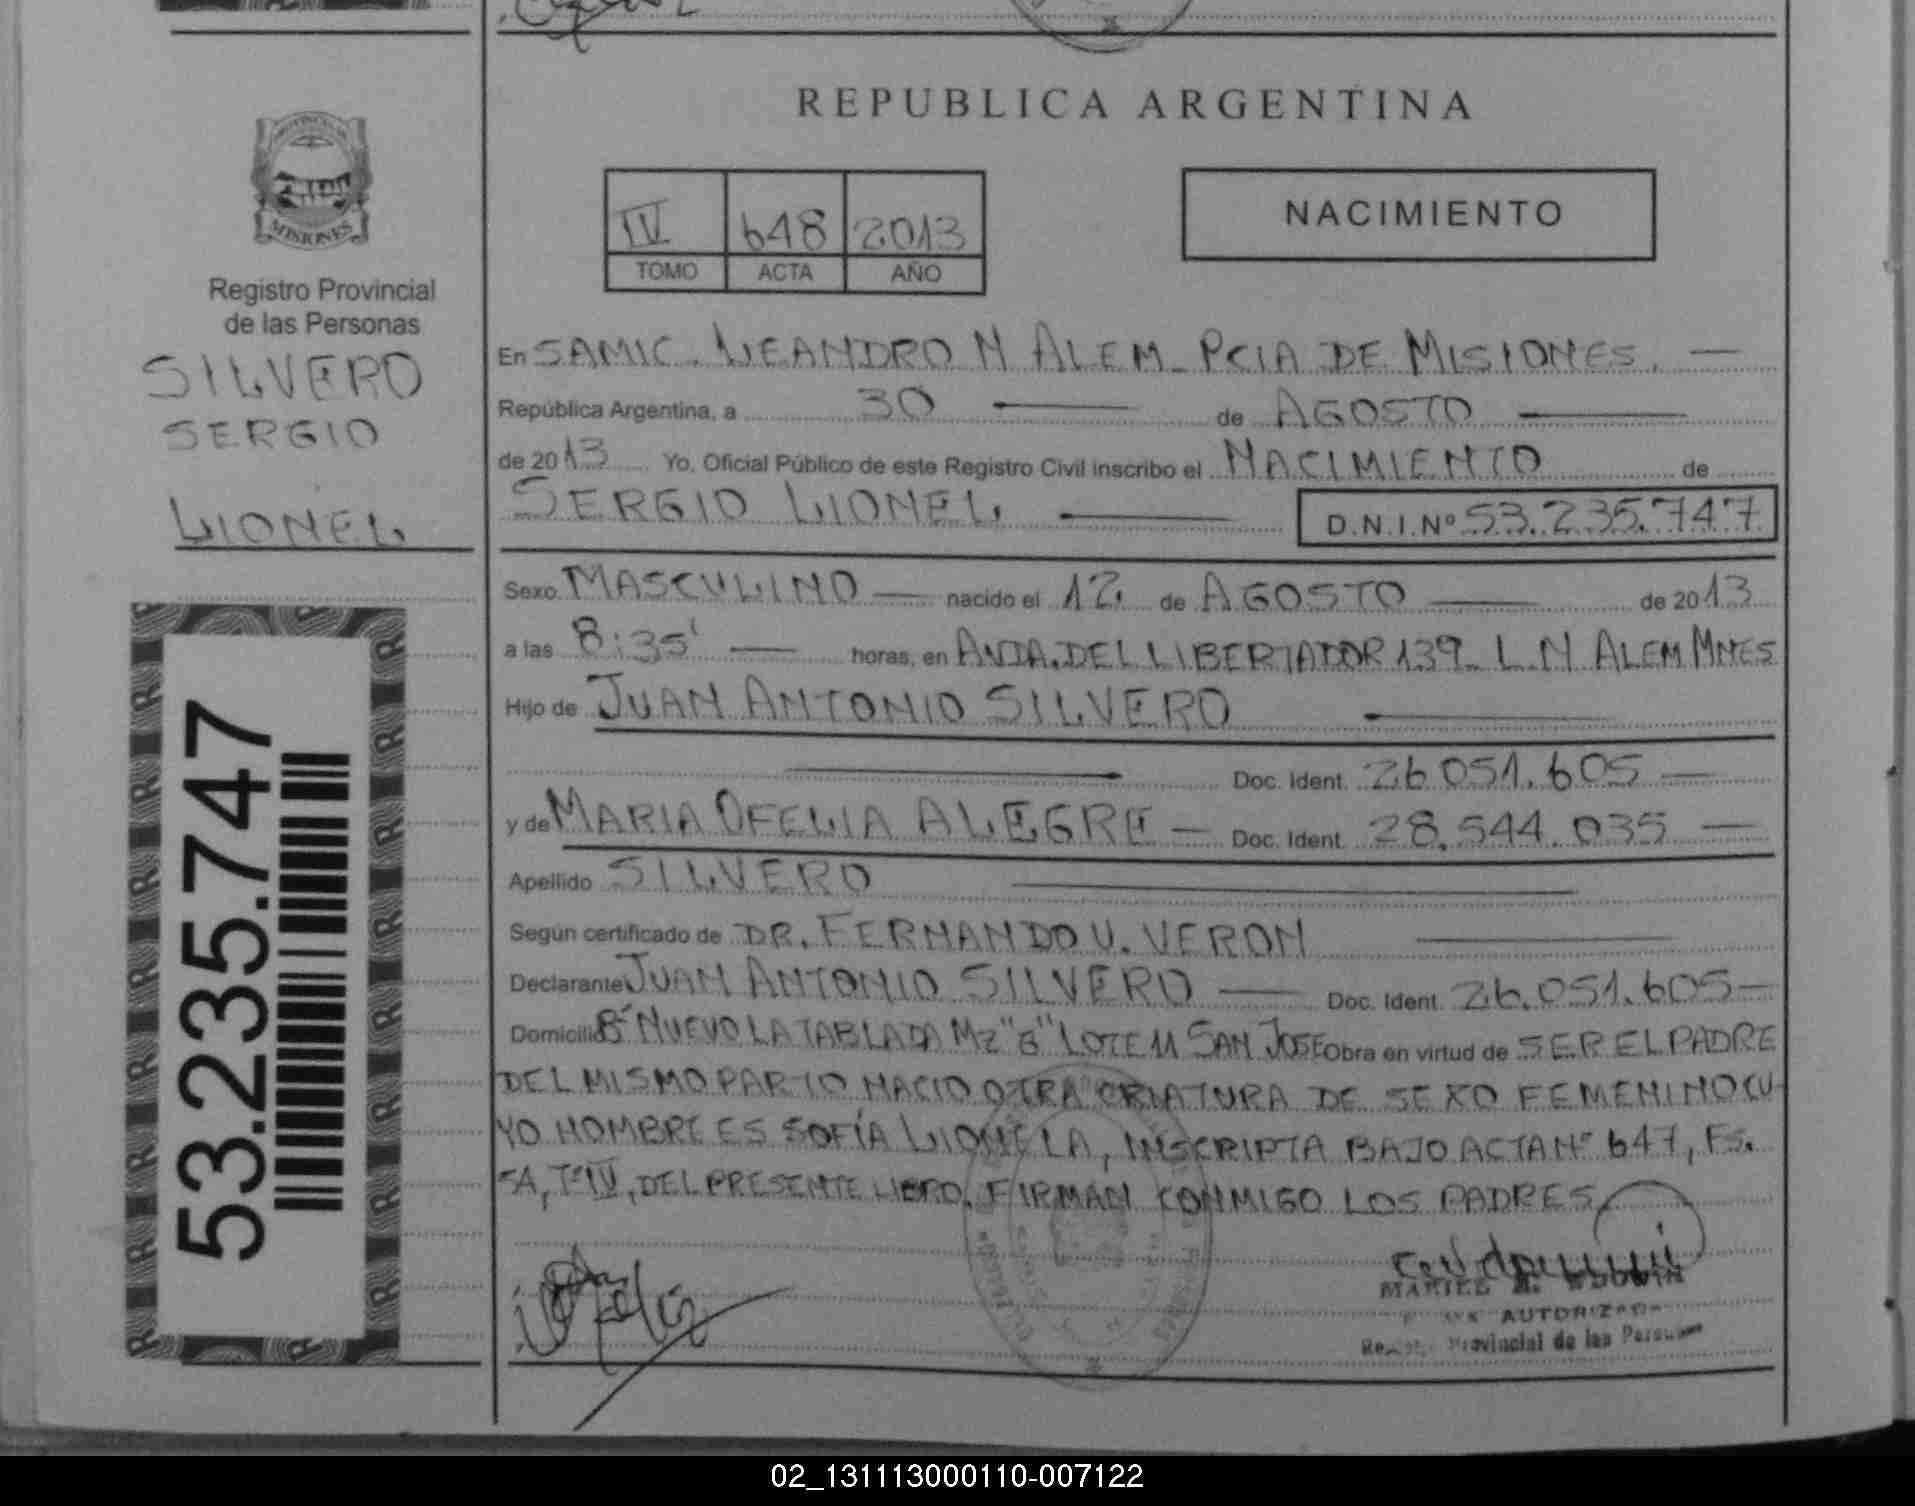 REPUBLICA ARGENTINA
IV 648 2013
TOMO ACTA AÑO
NACIMIENTO
PROVINCIA DE
MISIONES
Registro Provincial
de las Personas
SILVERO
SERGIO
LIONEL
53.235.747
En SAMIC. LEANDRO N ALEM_ PCIA DE MISIONES. —
República Argentina, a 30 — de AGOSTO —
de 2013 Yo, Oficial Público de este Registro Civil inscribo el NACIMIENTO de
SERGIO LIONEL — D.N.I.Nº 53.235.747
Sexo MASCULINO — nacido el 12 de AGOSTO — de 2013
a las 8:35' — horas, en AVDA. DEL LIBERTADOR 139_ L N ALEM MNES
Hijo de JUAN ANTONIO SILVERO —
— Doc. Ident. 26.051.605 —
y de MARIA OFELIA ALEGRE — Doc. Ident. 28.544.035 —
Apellido SILVERO —
Según certificado de DR. FERNANDO V. VERON —
Declarante JUAN ANTONIO SILVERO — Doc. Ident. 26.051.605 —
Domicilio Bº NUEVO LA TABLADA MZ "G" LOTE 11 SAN JOSE obra en virtud de SER EL PADRE
DEL MISMO PARTO NACIO OTRA CRIATURA DE SEXO FEMENINO CU-
YO NOMBRE ES SOFÍA LIONELA, INSCRIPTA BAJO ACTA Nº 647, FS.
5A, Tº IV, DEL PRESENTE LIBRO. FIRMAN CONMIGO LOS PADRES
AUTORIZADA
Registro Provincial de las Personas
02_131113000110-007122